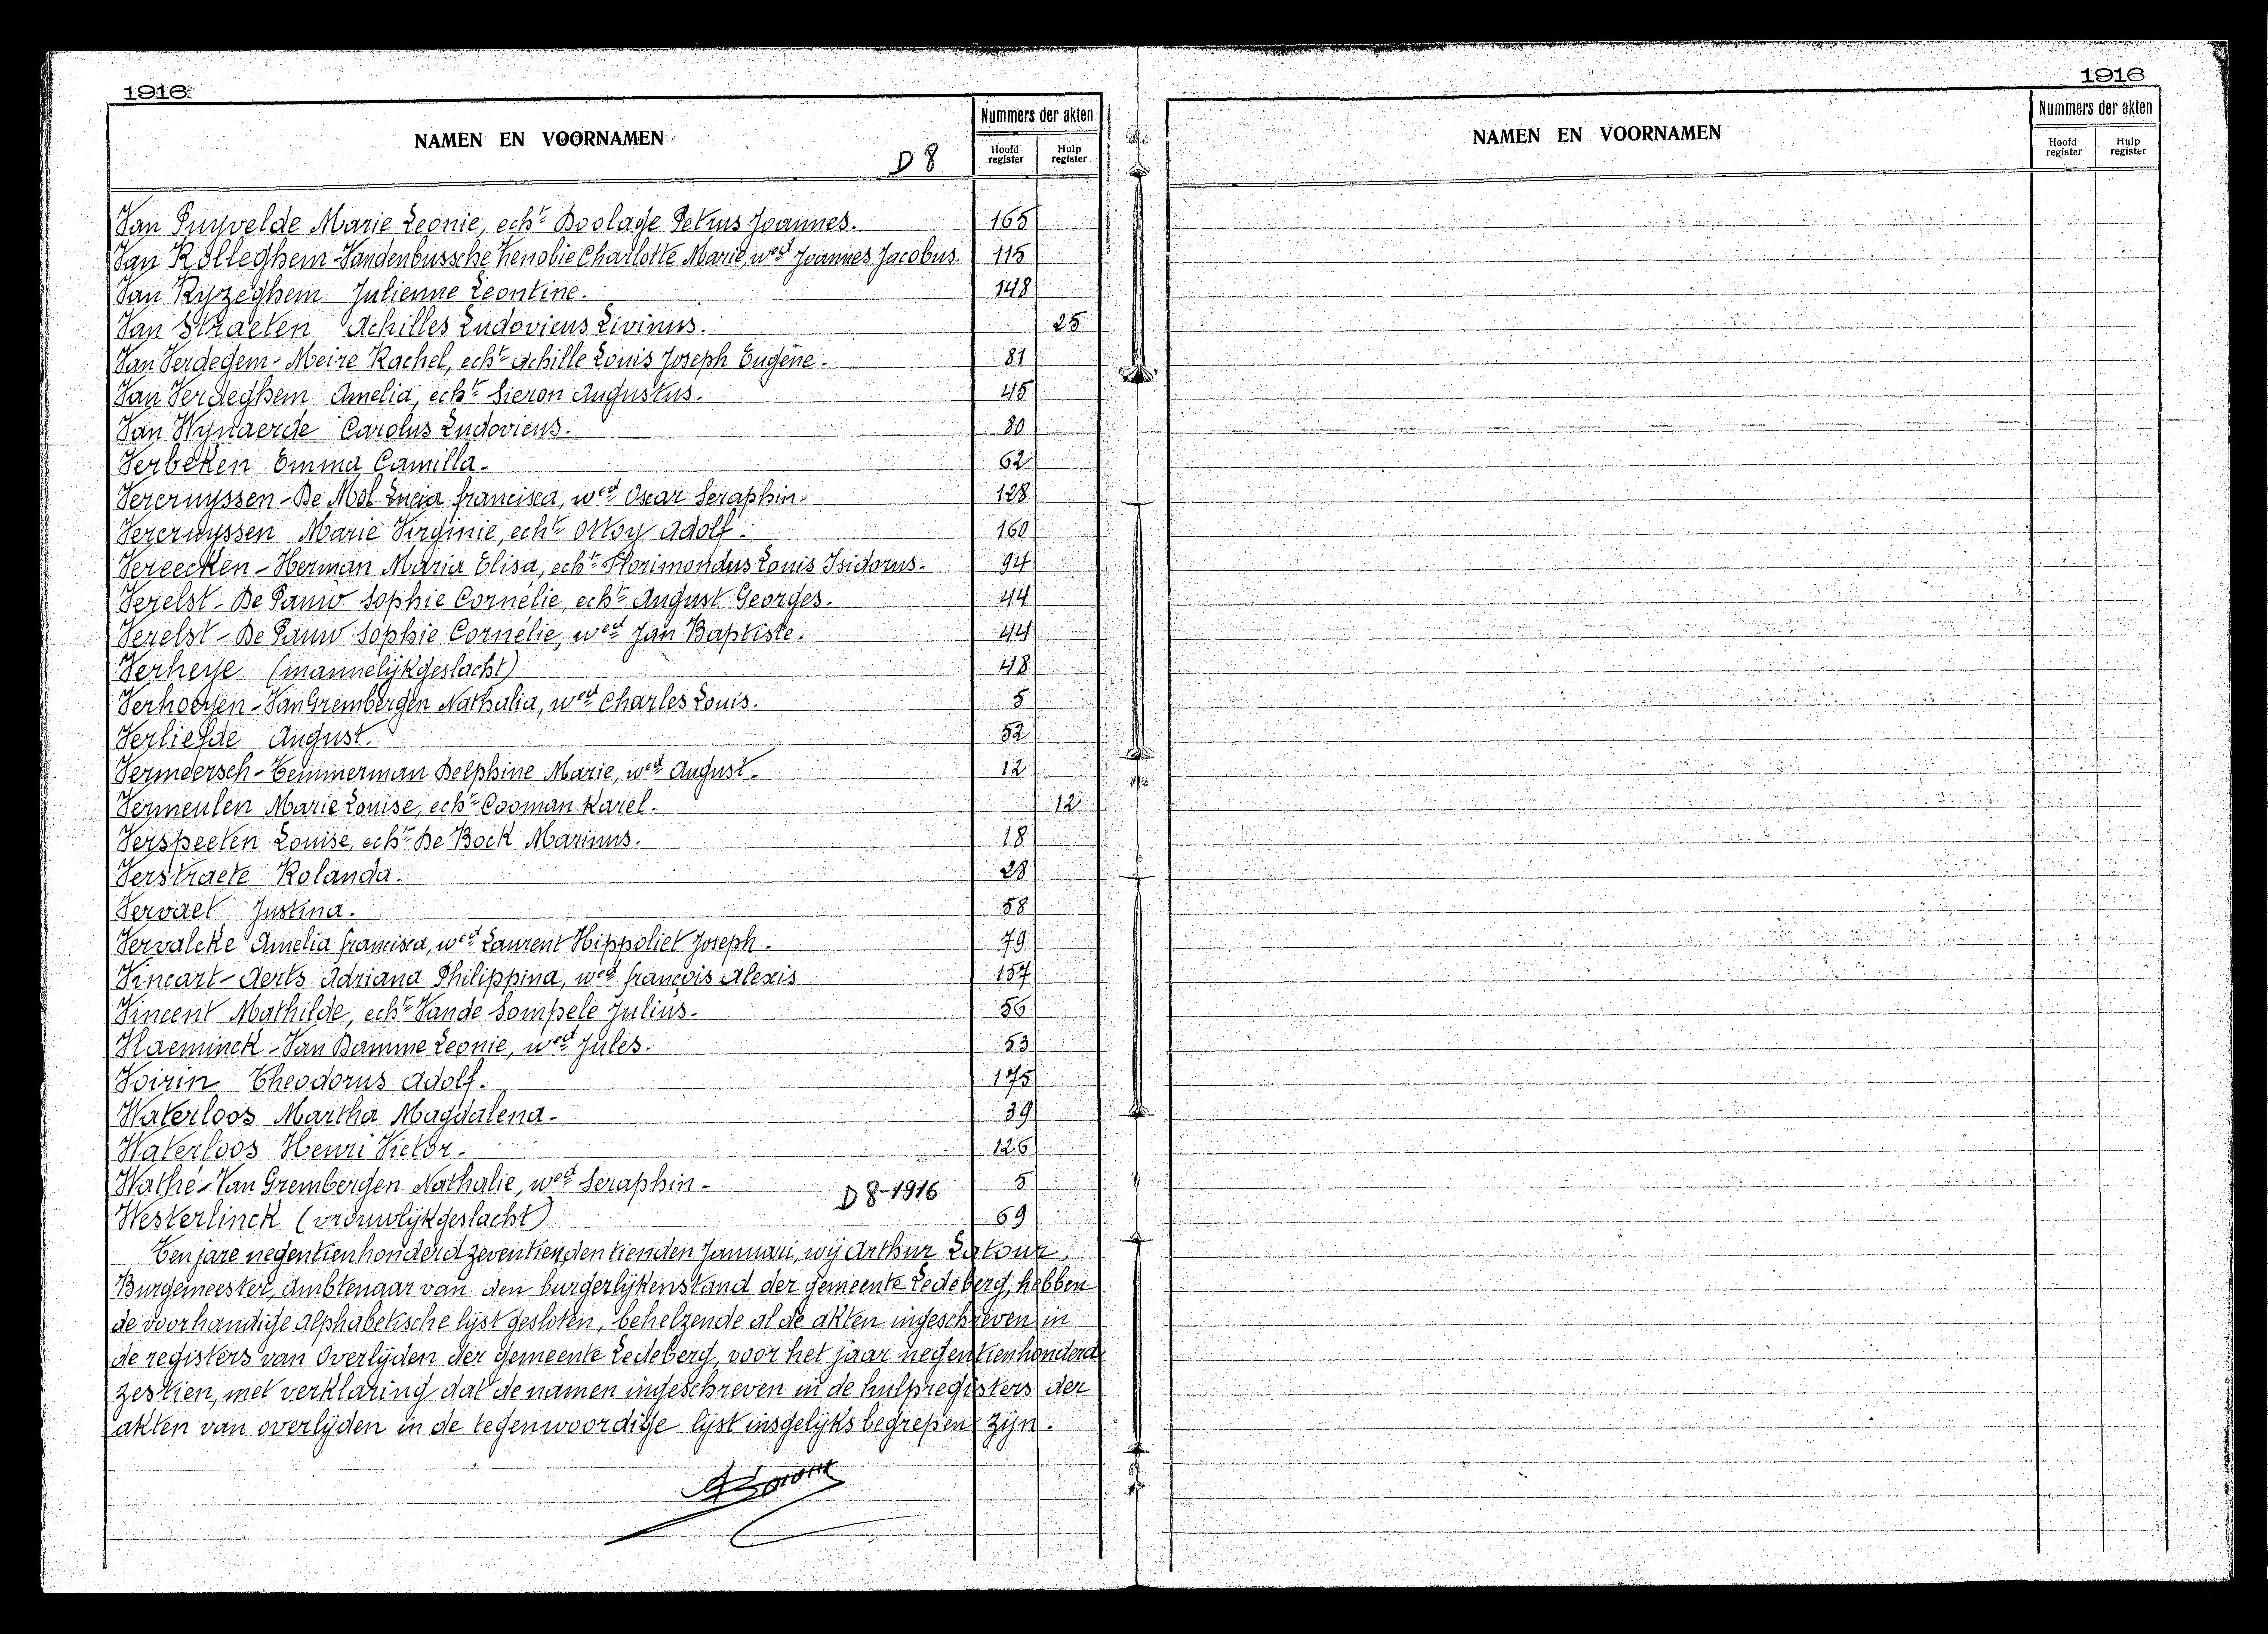 1916
NAMEN EN VOORNAMEN
D 8
Nummers der akten
Hoofd register
Hulp register
Van Puyvelde Marie Leonie, echt Boolage Petrus Joannes. 165
Van Rolleghem-Vandenbussche Zenobie Charlotte Marie, wed Joannes Jacobus. 115
Van Ryzeghem Julienne Leontine. 148
Van Straeten Achilles Ludovicus Livinus. 25
Van Verdegem-Meire Rachel, echt Achille Louis Joseph Eugène. 81
Van Verdeghem Amelia, echt Sieron Augustus. 45
Van Wynaerde Carolus Ludovicus. 80
Verbeken Emma Camilla. 62
Vercruyssen-De Mol Lucia francisca, wed Oscar Seraphin. 128
Vercruyssen Marie Virginie, echt Ottoy Adolf. 160
Vereecken-Herman Maria Elisa, echt Florimondus Louis Isidorus. 94
Verelst-De Pauw Sophie Cornélie, echt August Georges. 44
Verelst-De Pauw Sophie Cornélie, wed Jan Baptiste. 44
Verheye (mannelijkgeslacht) 48
Verhoeyen-Van Grembergen Nathalia, wed Charles Louis. 5
Verliefde August. 52
Vermeersch-Temmerman Delphine Marie, wed August. 12
Vermeulen Marie Louise, echt Cooman Karel. 12
Verspeeten Louise, echt De Bock Marinus. 18
Verstraete Rolanda. 28
Vervaet Justina. 58
Vervalcke Amelia francisca, wed Laurent Hippoliet Joseph. 79
Vincart-Aerts Adriana Philippina, wed françois Alexis 157
Vincent Mathilde, echt Vande Sompele Julius. 56
Vlaeminck-Van Damme Leonie, wed Jules. 53
Voirin Theodorus Adolf. 175
Waterloos Martha Magdalena. 39
Waterloos Henri Victor. 126
Wathé-Van Grembergen Nathalie, wed Seraphin. 5
D 8-1916
Westerlinck (vrouwlijkgeslacht) 69
Ten jare negentienhonderd zeventien, den tienden Januari, wij Arthur Latour,
Burgemeester, Ambtenaar van den burgerlijkenstand der gemeente Ledeberg, hebben
de voorhandige alphabetische lijst gesloten, behelzende al de akten ingeschreven in
de registers van Overlijden der gemeente Ledeberg, voor het jaar negentienhonderd
zestien, met verklaring dat de namen ingeschreven in de hulpregisters der
akten van overlijden in de tegenwoordige lijst insgelijks begrepen zijn.
1916
NAMEN EN VOORNAMEN
Nummers der akten
Hoofd register
Hulp register